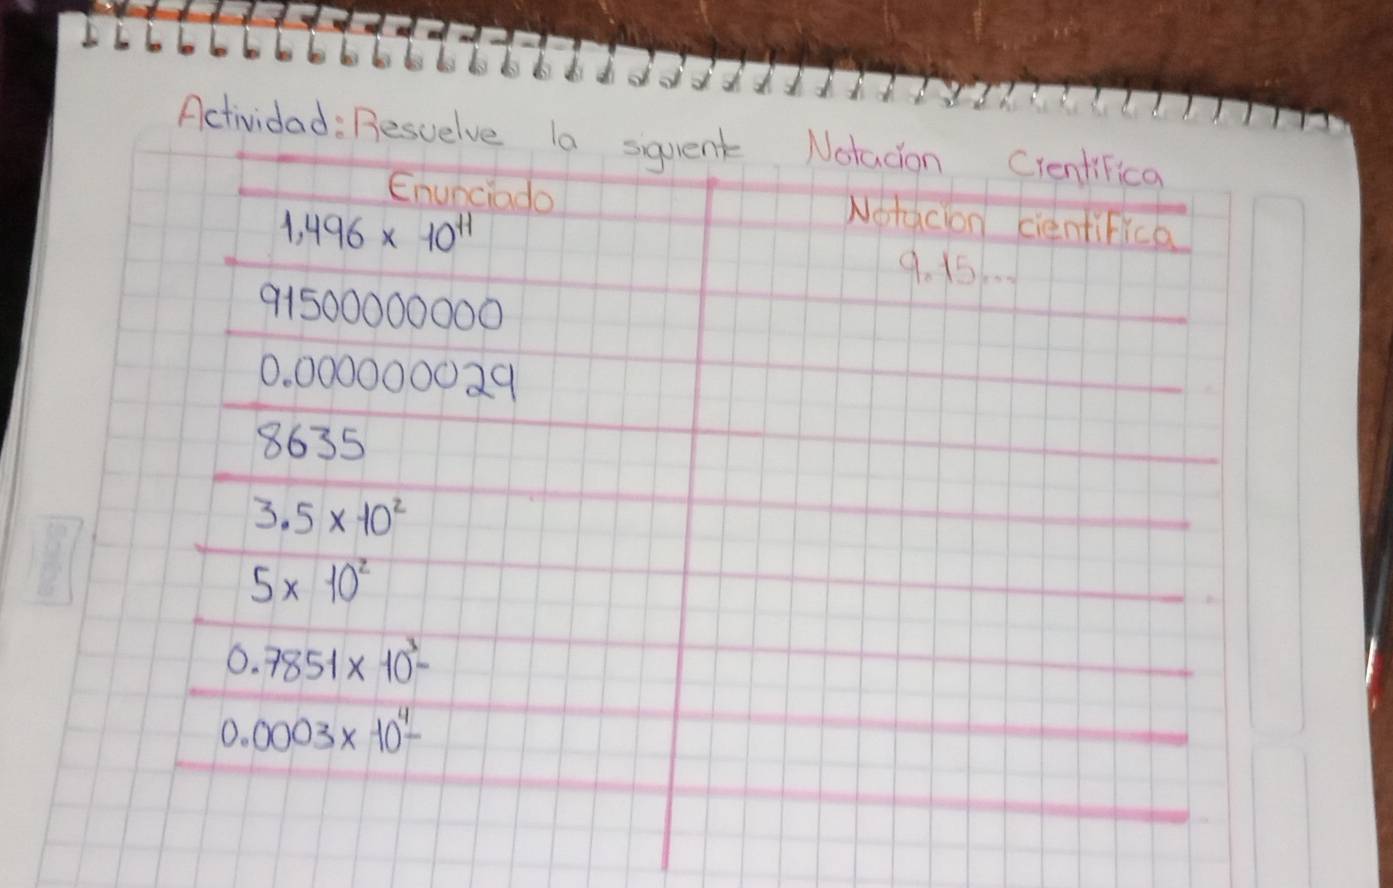 Actividad: Resuelve la siguiente Notacion Cientifica
Enunciado Notacion cientifica
1,496 x 10¹¹ 9.15...
91500000000
0.000000029
8635
3.5 x 10²
5 x 10²
0.7851 x 10³-
0.0003 x 10⁴-